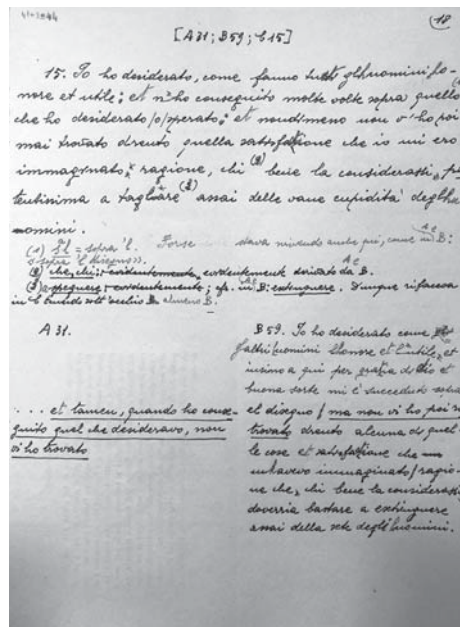 18
[A 31; B 59; C 15]
15. Io ho desiderato, come fanno tutti gli huomini, ho-
nore et utile; et n'ho conseguito molte volte sopra quello
che ho desiderato /o/ sperato; et nondimeno non v'ho poi
mai trovato drento quella satisfatione che io mi ero
immaginato; ragione, chi (2) bene la considerassi, po-
tentissima a tagliare (3) assai delle vane cupidità degli hu-
omini.
(1) = sopra 'l. Forse stava mirando anche qui, come in B:
sopra 'l disegno».
(2) che, chi: evidentemente derivato da B.
(3) evidentemente; cfr. in B: extinguere. Dunque rifaceva
in C almeno B.
A 31.
. . . et tamen, quando ho conse-
guito quel che desideravo, non
vi ho trovato
B 59. Io ho desiderato come
altri huomini l'honore et l'utile, et
insino a qui per gratia di Dio et
buona sorte mi è succeduto sopra
el disegno / ma non vi ho poi
trovato drento alcuna di quel-
le cose et satisfatione che
m'havevo immaginato / ragio-
ne che, chi bene la considerassi
doverria bastare a extinguere
assai della sete degli huomini.